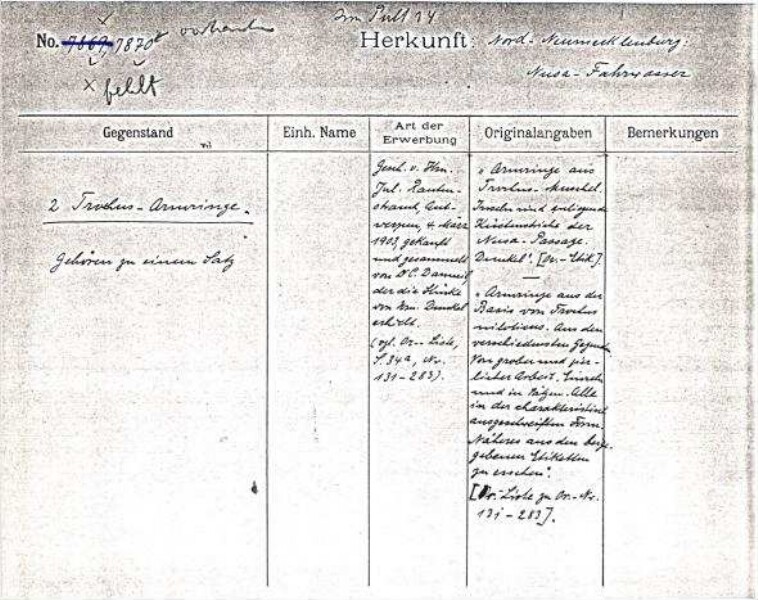 Im Pult 14
No. 7869, 7870 vorhanden
× fehlt
Herkunft: Nord-Neumecklenburg:
Nusa-Fahrwasser
Gegenstand
Einh. Name
Art der Erwerbung
Originalangaben
Bemerkungen
2 Trochus-Armringe.
Gehören zu einem Satz
Gesch. v. Hrn.
Jul. Rauten-
strauch, Ant-
werpen, 4. März
1903, gekauft
und gesammelt
von Dr C. Danneil,
der die Stücke
von Hrn. Dunkel
erhielt.
(vgl. Or.-Liste,
S. 34a, Nr.
131-283).
"Armringe aus
Trochus-Muschel.
Inseln und anliegende
Küstenstriche der
Nusa-Passage.
Dunkel". [Or.-Etik].
"Armringe aus der
Basis von Trochus
niloticus. Aus den
verschiedensten Gegenden
Von grober und zier-
licher Arbeit. Einzeln
und in Sätzen. Alle
in der charakteristisch
ausgeschweiften Form.
Näheres aus den beige-
gebenen Etiketten
zu ersehen".
[Or.-Liste zu Or.-Nr.
131-283].